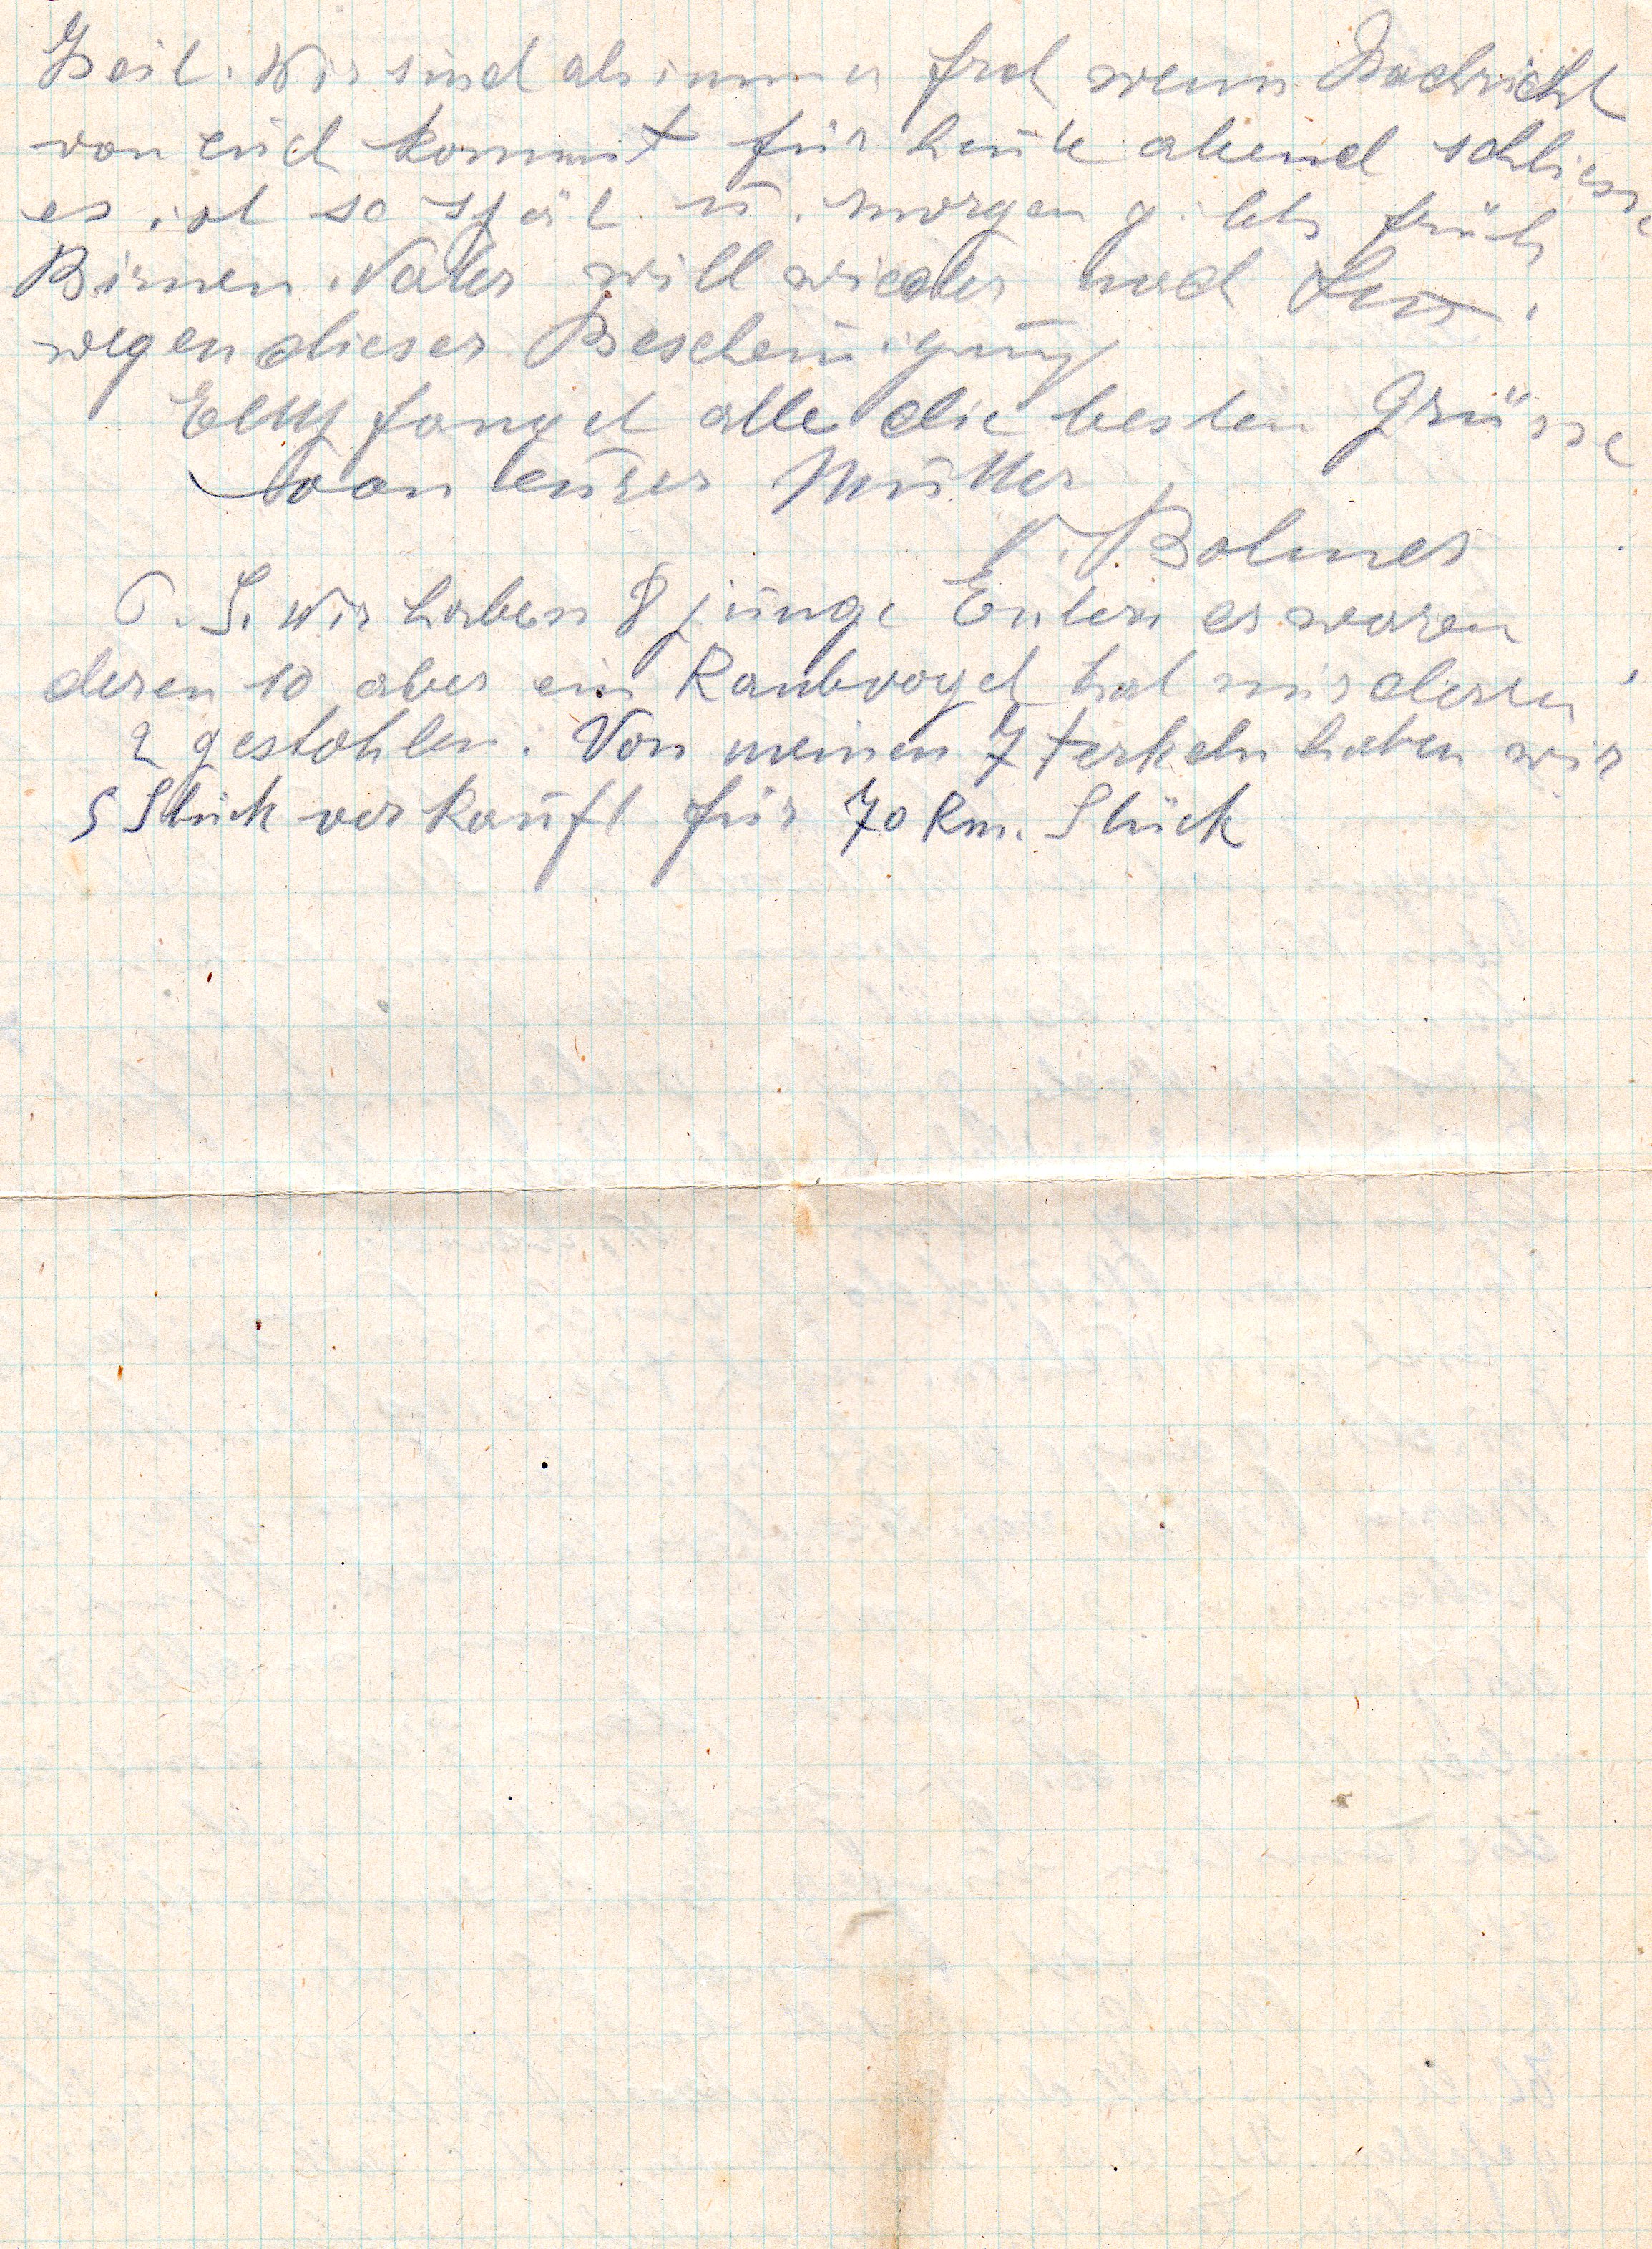 Zeit. Wir sind als immer froh wenn Nachricht
von euch kommt für heute abend schliesse
es ist so spät u. morgen gibts früh
Birnen. Vater will wieder nach Lux.
wegen dieser Bescheinigung
Empfanget alle die besten Grüsse
von eurer Mutter
V. Bolmer
P.S. Wir haben 8 junge Enten es waren
deren 10 aber ein Raubvogel hat mir deren
2 gestohlen. Von meinen 7 Ferkeln haben wir
5 Stück verkauft für 70 Rm. Stück